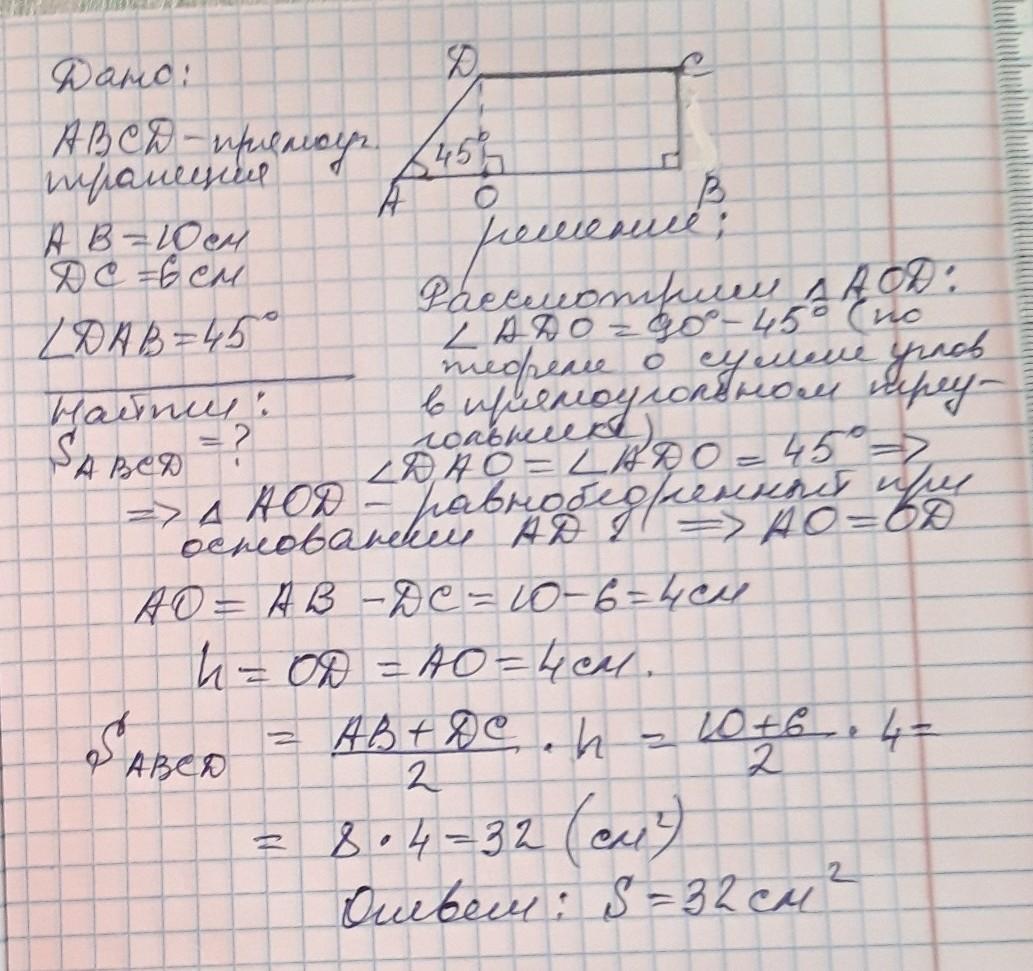 Дано:
ABCD - прямоуг.
трапеция
AB = 10 см
DC = 6 см
∠DAB = 45°
Найти:
S ABCD = ?
D C
45°
A O B
решение:
Рассмотрим △ AOD:
∠ ADO = 90° - 45° (по
теореме о сумме углов
в прямоугольном треу-
гольнике)
∠DAO = ∠ADO = 45° =>
=> △ AOD - равнобедренный при
основании AD => AO = OD
AO = AB - DC = 10 - 6 = 4 см
h = OD = AO = 4 см.
S ABCD = (AB + DC)/2 · h = (10 + 6)/2 · 4 =
= 8 · 4 = 32 (см²)
Ответ: S = 32 см²